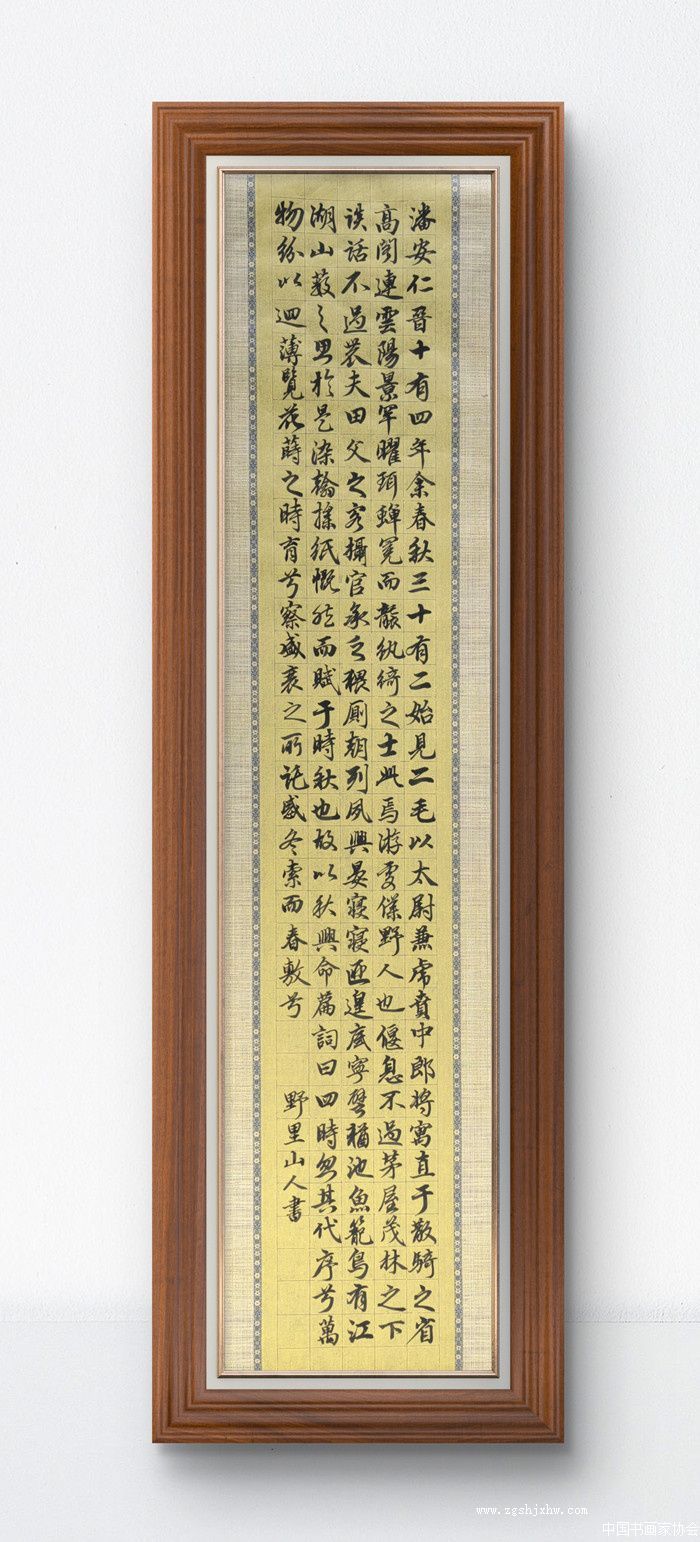 潘安仁晉十有四年余春秋三十有二始見二毛以太尉兼虎賁中郎將寓直于散騎之省
高閣連雲陽景罕曜珥蟬冕而襲紈綺之士此焉游處僕野人也偃息不過茅屋茂林之下
談話不過農夫田父之客攝官承乏猥厠朝列夙興晏寢寢匪遑底寧譬猶池魚籠鳥有江
湖山薮之思於是染翰操紙慨然而賦于時秋也故以秋興命篇詞曰四時忽其代序兮萬
物紛以迴薄覽花蒔之時育兮察盛衰之所託感冬索而春敷兮
野里山人書
www.zgshjxhw.com
中国书画家协会